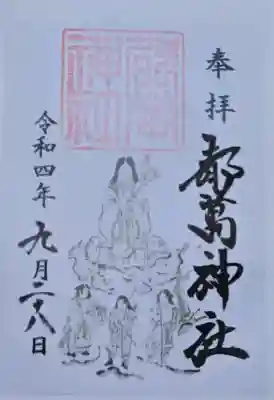 奉拝
都萬神社
令和四年
九月二八日